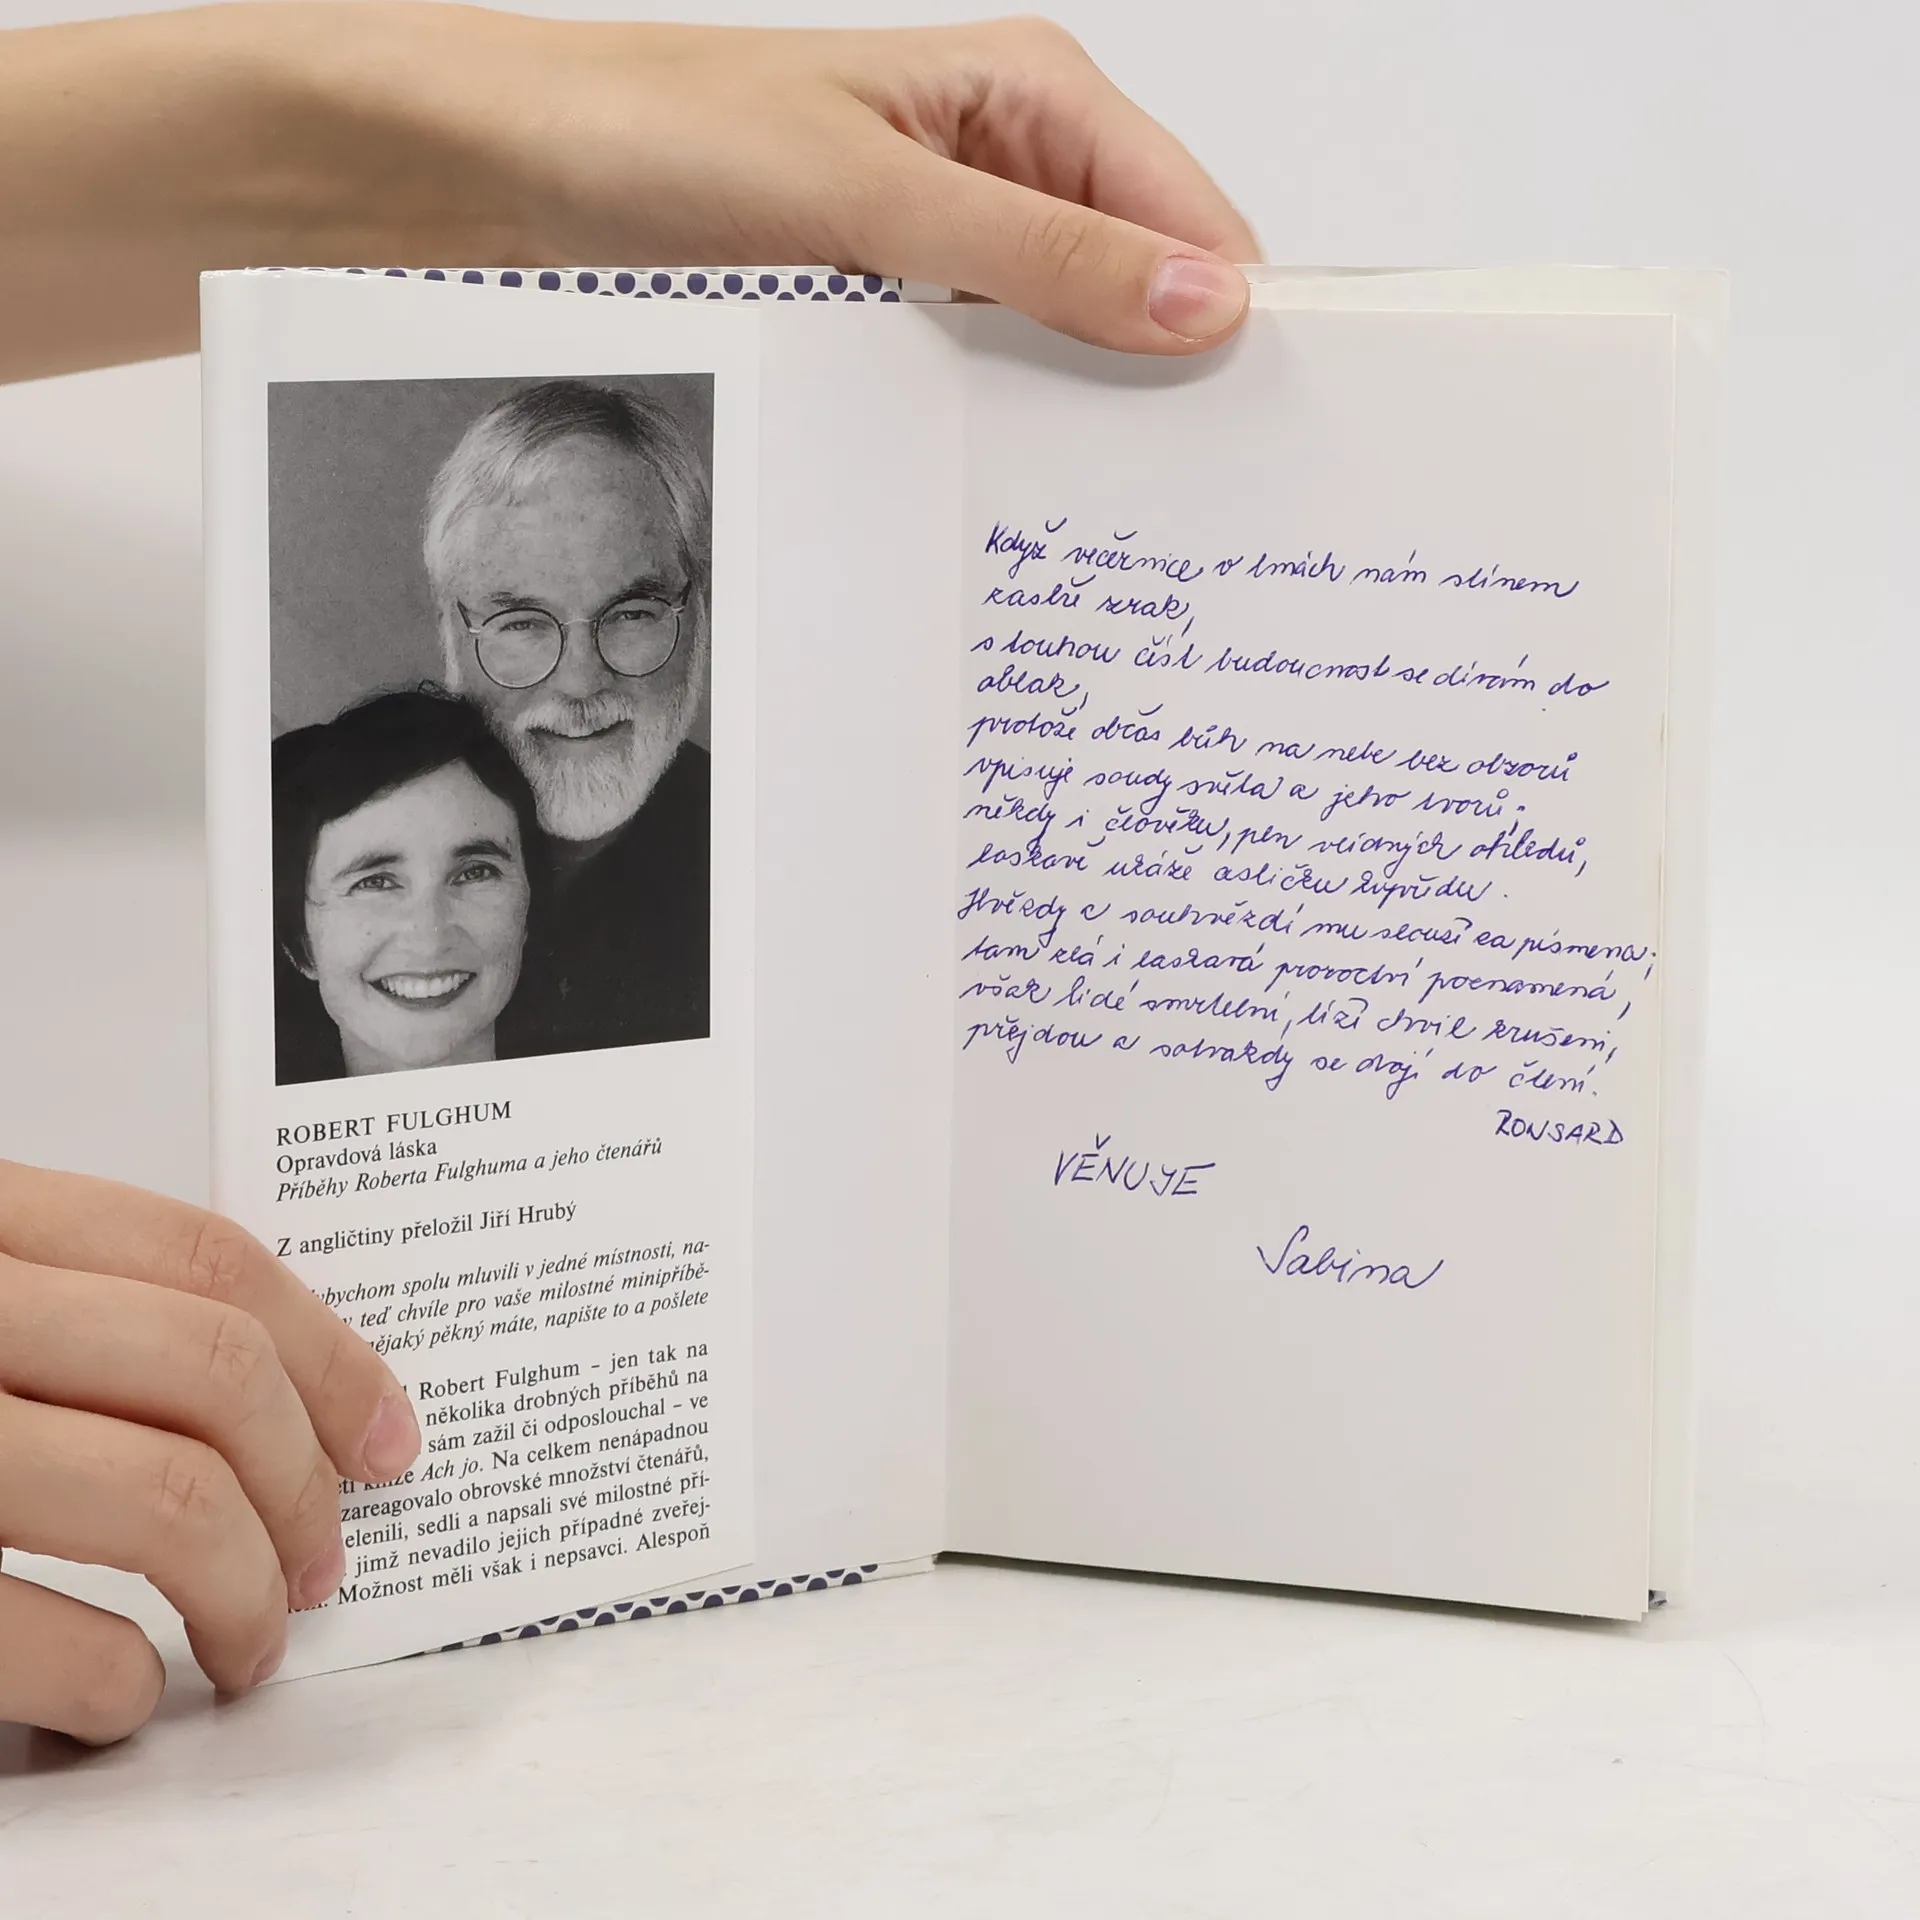 ROBERT FULGHUM
Opravdová láska
Příběhy Roberta Fulghuma a jeho čtenářů
Z angličtiny přeložil Jiří Hrubý
bychom spolu mluvili v jedné místnosti, na-
teď chvíle pro vaše milostné minipříbě-
nějaký pěkný máte, napište to a pošlete
Robert Fulghum – jen tak na
několika drobných příběhů na
sám zažil či odposlouchal – ve
Ach jo. Na celkem nenápadnou
zareagovalo obrovské množství čtenářů,
elenili, sedli a napsali své milostné pří-
jimž nevadilo jejich případné zveřej-
Možnost měli však i nepsavci. Alespoň
Když večernice v tmách nám stínem
zastře zrak,
s touhou číst budoucnost se dívám do
oblak,
protože občas bůh na nebe bez obzorů
vpisuje soudy světa a jeho tvorů;
někdy i člověku, pln vlídných ohledů,
laskavě ukáže cestičku kupředu.
Hvězdy a souhvězdí mu slouží za písmena;
tam zlá i laskavá proroctví poznamená,
však lidé smrtelní, tíží chvil zrušeni,
přejdou a sotvakdy se dojí do čtení.
RONSARD
VĚNUJE
Sabina